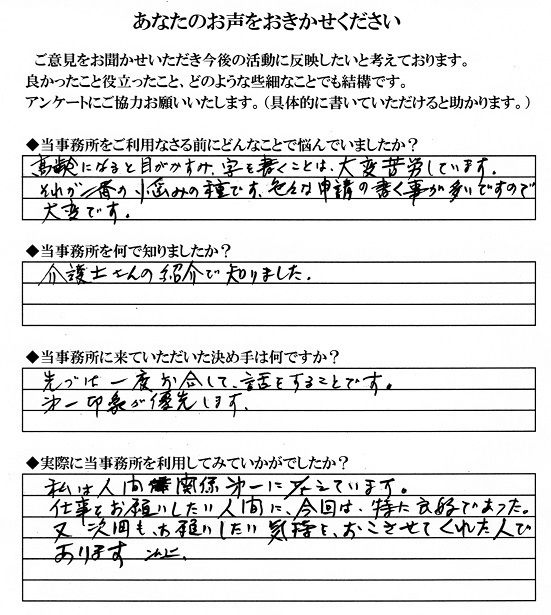 あなたのお声をおきかせください
ご意見をお聞かせいただき今後の活動に反映したいと考えております。
良かったこと役立ったこと、どのような些細なことでも結構です。
アンケートにご協力お願いいたします。（具体的に書いていただけると助かります。）
◆当事務所をご利用なさる前にどんなことで悩んでいましたか？
高齢になると目がかすみ、字を書くことは、大変苦労しています。
それが一番の小悩みの種です、色々な申請の書く事が多いですので
大変です。
◆当事務所を何で知りましたか？
介護士さんの紹介で知りました。
◆当事務所に来ていただいた決め手は何ですか？
先づは一度お会して、話をすることです。
第一印象が優先します。
◆実際に当事務所を利用してみていかがでしたか？
私は人間関係第一に考えています。
仕事をお願いしたい人間に、今回は、特に良好であった。
又次回も、お願いしたい気持を、おこさせてくれた人で
あります